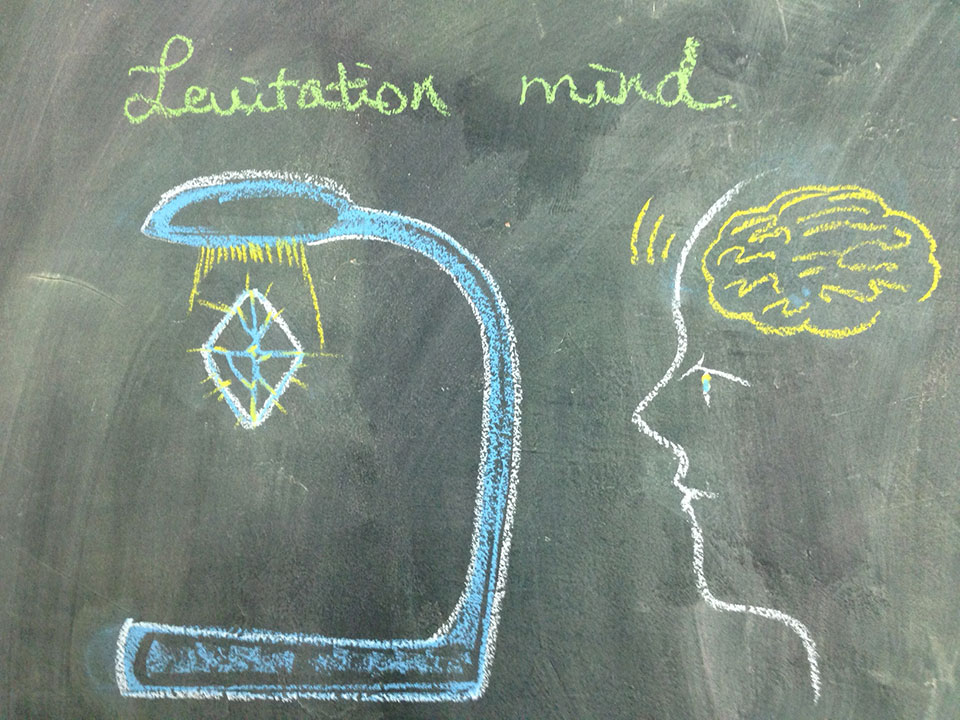 Levitation mind